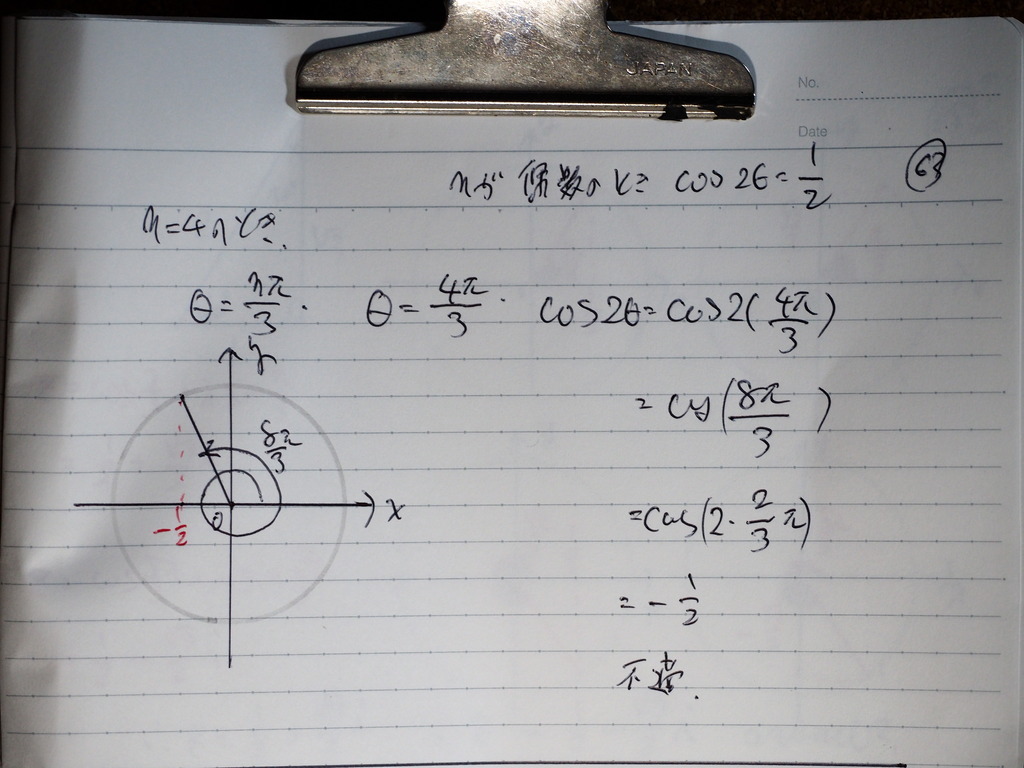 JAPAN
No.
Date
nが偶数のとき cos2θ=1/2 63
n=4のとき.
θ=nπ/3. θ=4π/3. cos2θ=cos2(4π/3)
=cos(8π/3)
=cos(2·2/3π)
=-1/2
不適.
y
8π/3
x
0
-1/2